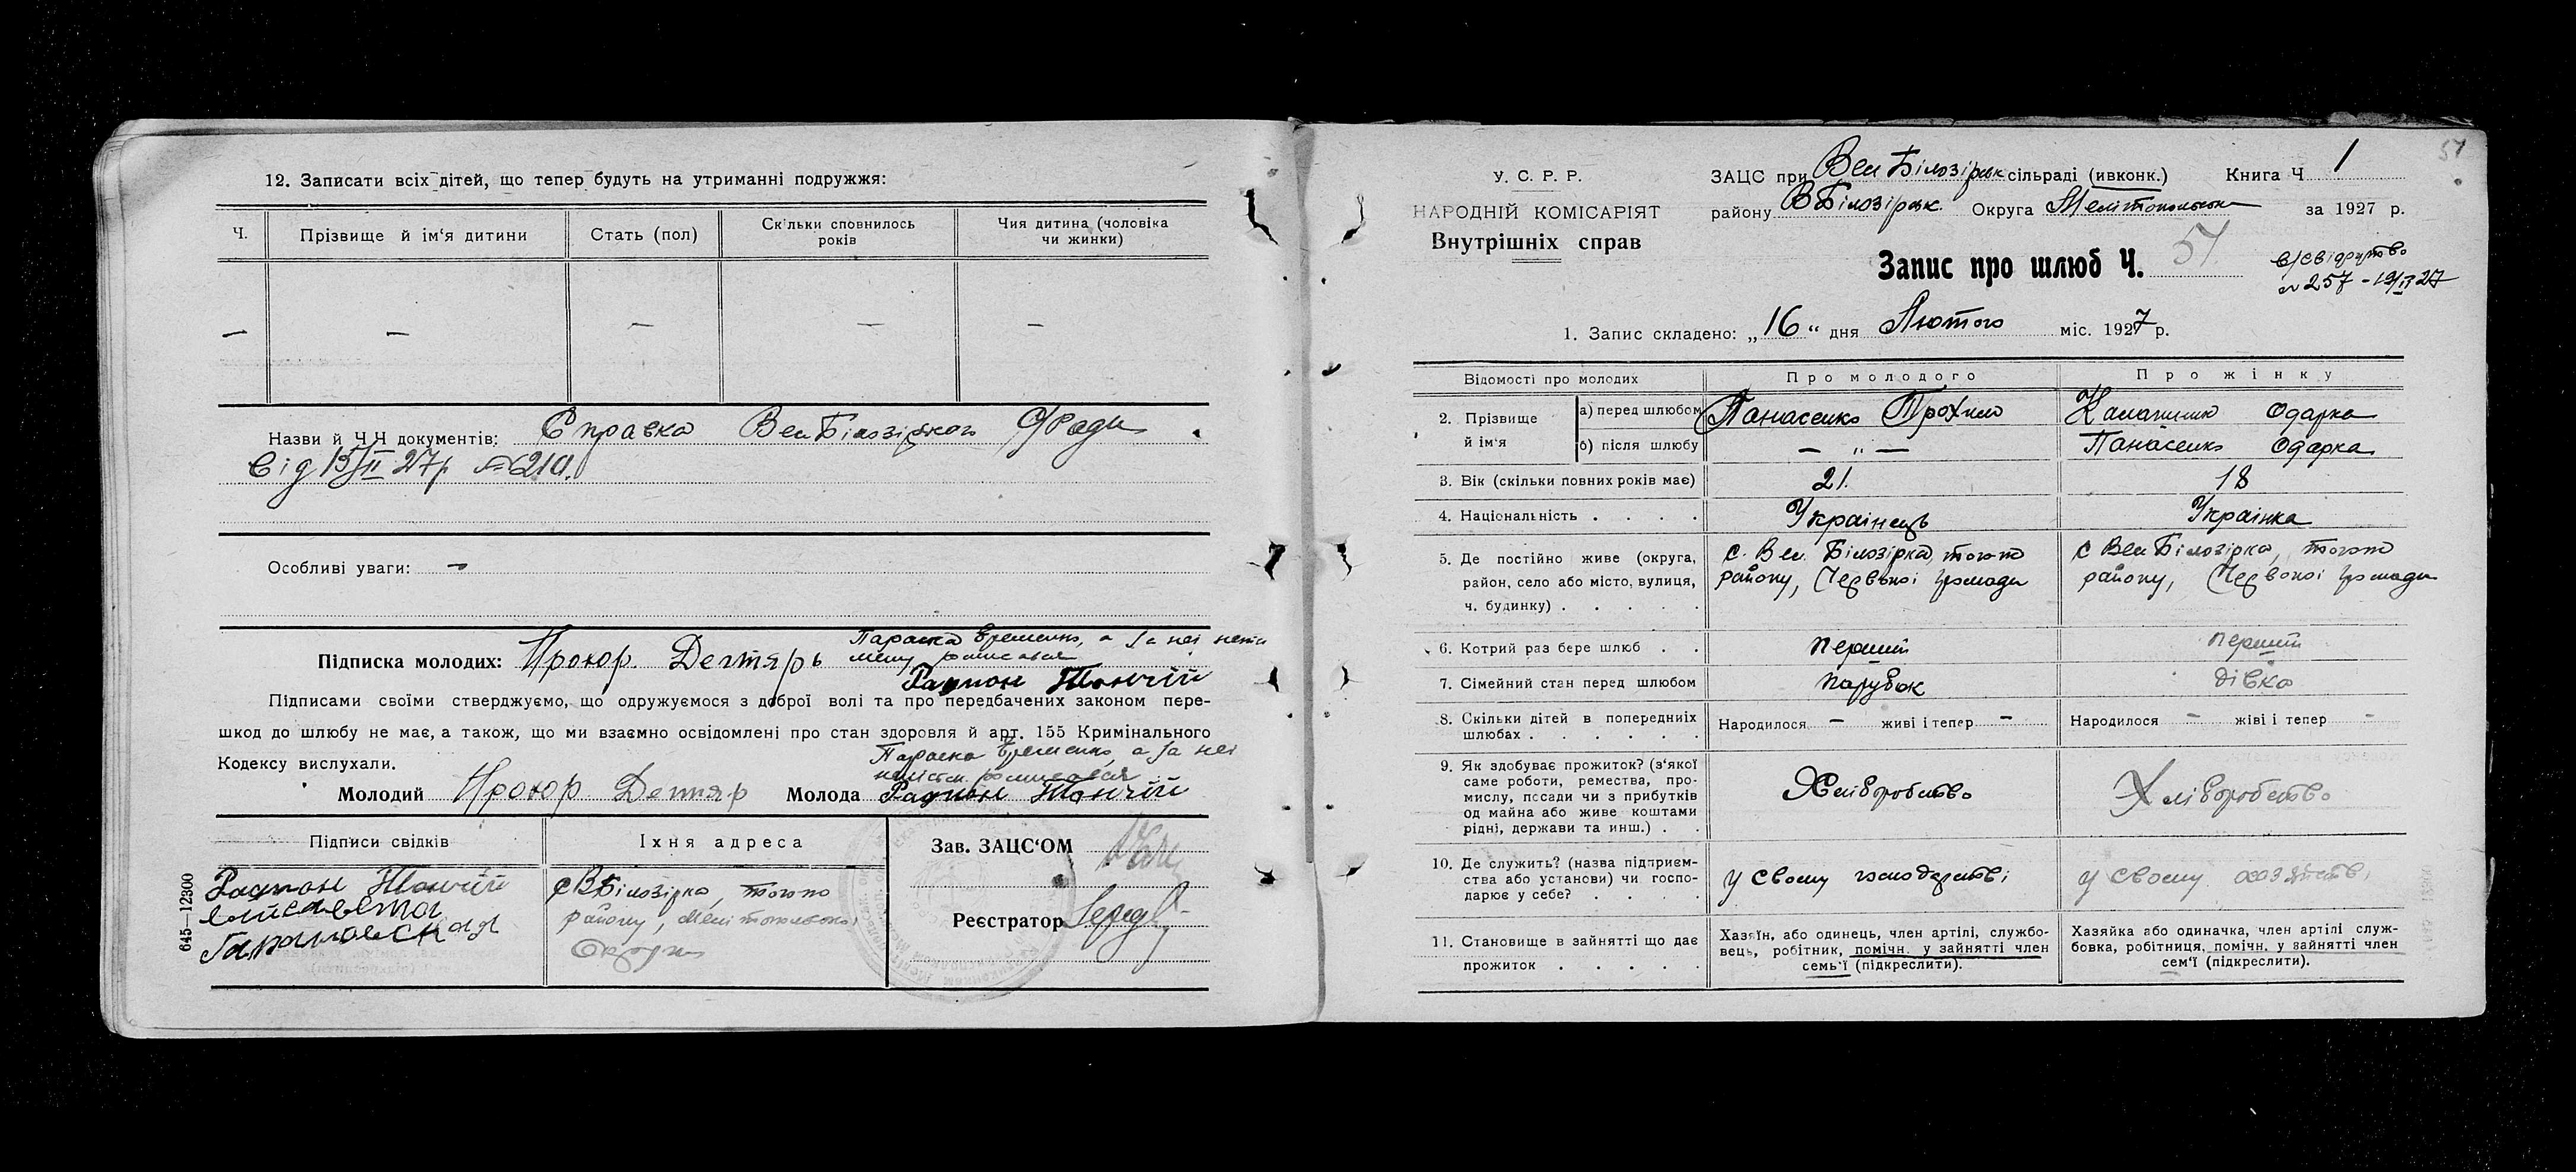 12. Записати всіх дітей, що тепер будуть на утриманні подружжя:
Ч.
Прізвище й ім'я дитини
Стать (пол)
Скільки сповнилось років
Чия дитина (чоловіка чи жинки)
— — — — —
Назви й Ч.Ч документів: Справка Вел Білозірського С/Ради
від 15/II 27р №
Особливі уваги: —
Підписка молодих: Прохор Дегтярь
Параска Єременко, а за неї
росписався
Радион Тончій
Підписами своїми стверджуємо, що одружуємося з доброї волі та про передбачених законом пере-
шкод до шлюбу не має, а також, що ми взаємно освідомлені про стан здоровля й арт. 155 Кримінального
Кодексу вислухали.
Параска Єременко, а за неї
росписався
Молодий Прохор Дегтяр Молода Радион Тончій
Підписи свідків
Їхня адреса
Радион Тончій
Єлисавета
с В Білозірка, того
району, Мелітопольсько
Округи
Зав. ЗАЦС'ОМ
Реєстратор
645—12300
У. С. Р. Р.
НАРОДНІЙ КОМІСАРІЯТ
Внутрішніх справ
ЗАЦС при Вел Білозірськ сільраді (ивконк.) Книга Ч 1
району В Білозірськ. Округа Мелітопольська за 1927 р.
51
Запис про шлюб Ч. 51
в/свідоцтво
№ 257 - 19/II 27
1. Запис складено: „16" дня Лютого міс. 1927 р.
Відомості про молодих
Про молодого
Про жінку
2. Прізвище й ім'я
а) перед шлюбом
Панасенко Трохим
Одарка
б) після шлюбу
— „ —
Панасенко Одарка
3. Вік (скільки повних років має)
21.
18
4. Національність . . . .
Українець
Українка
5. Де постійно живе (округа,
район, село або місто, вулиця,
ч. будинку) . . . . .
с. Вел. Білозірка, того
району, Червоної громади
с Вел Білозірка, того
району, Червоної громади
6. Котрий раз бере шлюб . .
перший
перший
7. Сімейний стан перед шлюбом
парубок
дівка
8. Скільки дітей в попередниіх
шлюбах . . . . . .
Народилося — живі і тепер —
Народилося — жіві і тепер -
9. Як здобуває прожиток? (з'якої
саме роботи, ремества, про-
мислу, посади чи з прибутків
од майна або живе коштами
рідні, держави та инш.) . .
Хліборобство
Хліборобство
10. Де служить? (назва підприєм-
ства або установи) чи госпо-
дарює у себе? . . . .
у своему господарстві
у своему хозяйстві
11. Становище в зайнятті що дає
прожиток . . . . .
Хазяїн, або одинець, член артілі, службо-
вець, робітник, помічн. у зайнятті член
семь'ї (підкреслити).
Хазяйка або одиначка, член артілі служ-
бовка, робітниця, помічн. у зайнятті член
сем'ї (підкреслити).